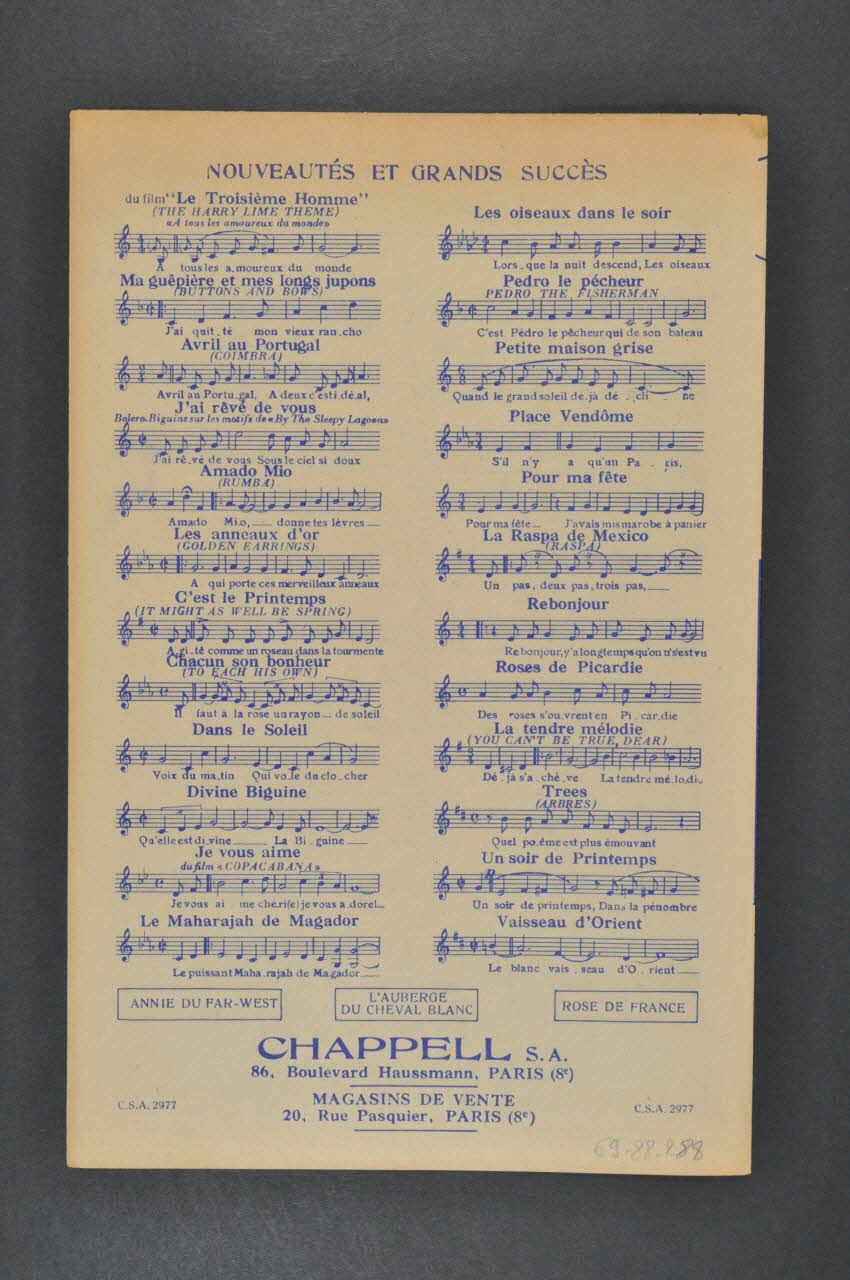 NOUVEAUTÉS ET GRANDS SUCCÈS
du film "Le Troisième Homme"
(THE HARRY LIME THEME)
«A tous les amoureux du monde»
A tous les a.moureux du monde
Ma guêpière et mes longs jupons
(BUTTONS AND BOWS)
J'ai quit.té mon vieux ran.cho
Avril au Portugal
(COIMBRA)
Avril au Portu.gal, A deux c'est i.dé.al,
J'ai rêvé de vous
Bolero-Biguine sur les motifs de «By The Sleepy Lagoon»
J'ai rê.vé de vous Sous le ciel si doux
Amado Mio
(RUMBA)
Amado Mi.o, donne tes lèvres
Les anneaux d'or
(GOLDEN EARRINGS)
A qui porte ces merveilleux anneaux
C'est le Printemps
(IT MIGHT AS WELL BE SPRING)
A.gi.té comme un roseau dans la tourmente
Chacun son bonheur
(TO EACH HIS OWN)
Il faut à la rose un rayon de soleil
Dans le Soleil
Voix du ma.tin Qui vo.le du clo.cher
Divine Biguine
Qu'elle est di.vine La Bi.guine
Je vous aime
du film «COPACABANA»
Je vous ai me chéri(e) je vous a.dorel...
Le Maharajah de Magador
Le puissant Maha.rajah de Ma.gador
Les oiseaux dans le soir
Lors.que la nuit descend, Les oiseaux
Pedro le pécheur
PEDRO THE FISHERMAN
C'est Pédro le pêcheur qui de son bateau
Petite maison grise
Quand le grand soleil dé.jà dé.cli ne
Place Vendôme
S'il n'y a qu'un Pa.ris,
Pour ma fête
Pour ma fête J'avais mis ma robe à panier
La Raspa de Mexico
(RASPA)
Un pas, deux pas, trois pas,
Rebonjour
Re bonjour, y'a longtemps qu'on n's'est vu
Roses de Picardie
Des roses s'ou.vrent en Pi.car.die
La tendre mélodie
(YOU CAN'T BE TRUE, DEAR)
Dé.jà s'a.chè.ve La tendre mé.lo.die
Trees
(ARBRES)
Quel po.ème est plus émouvant
Un soir de Printemps
Un soir de printemps, Dans la pénombre
Vaisseau d'Orient
Le blanc vais.seau d'O.rient
ANNIE DU FAR-WEST
L'AUBERGE
DU CHEVAL BLANC
ROSE DE FRANCE
CHAPPELL S.A.
86, Boulevard Haussmann, PARIS (8e)
MAGASINS DE VENTE
20, Rue Pasquier, PARIS (8e)
C.S.A. 2977
C.S.A. 2977